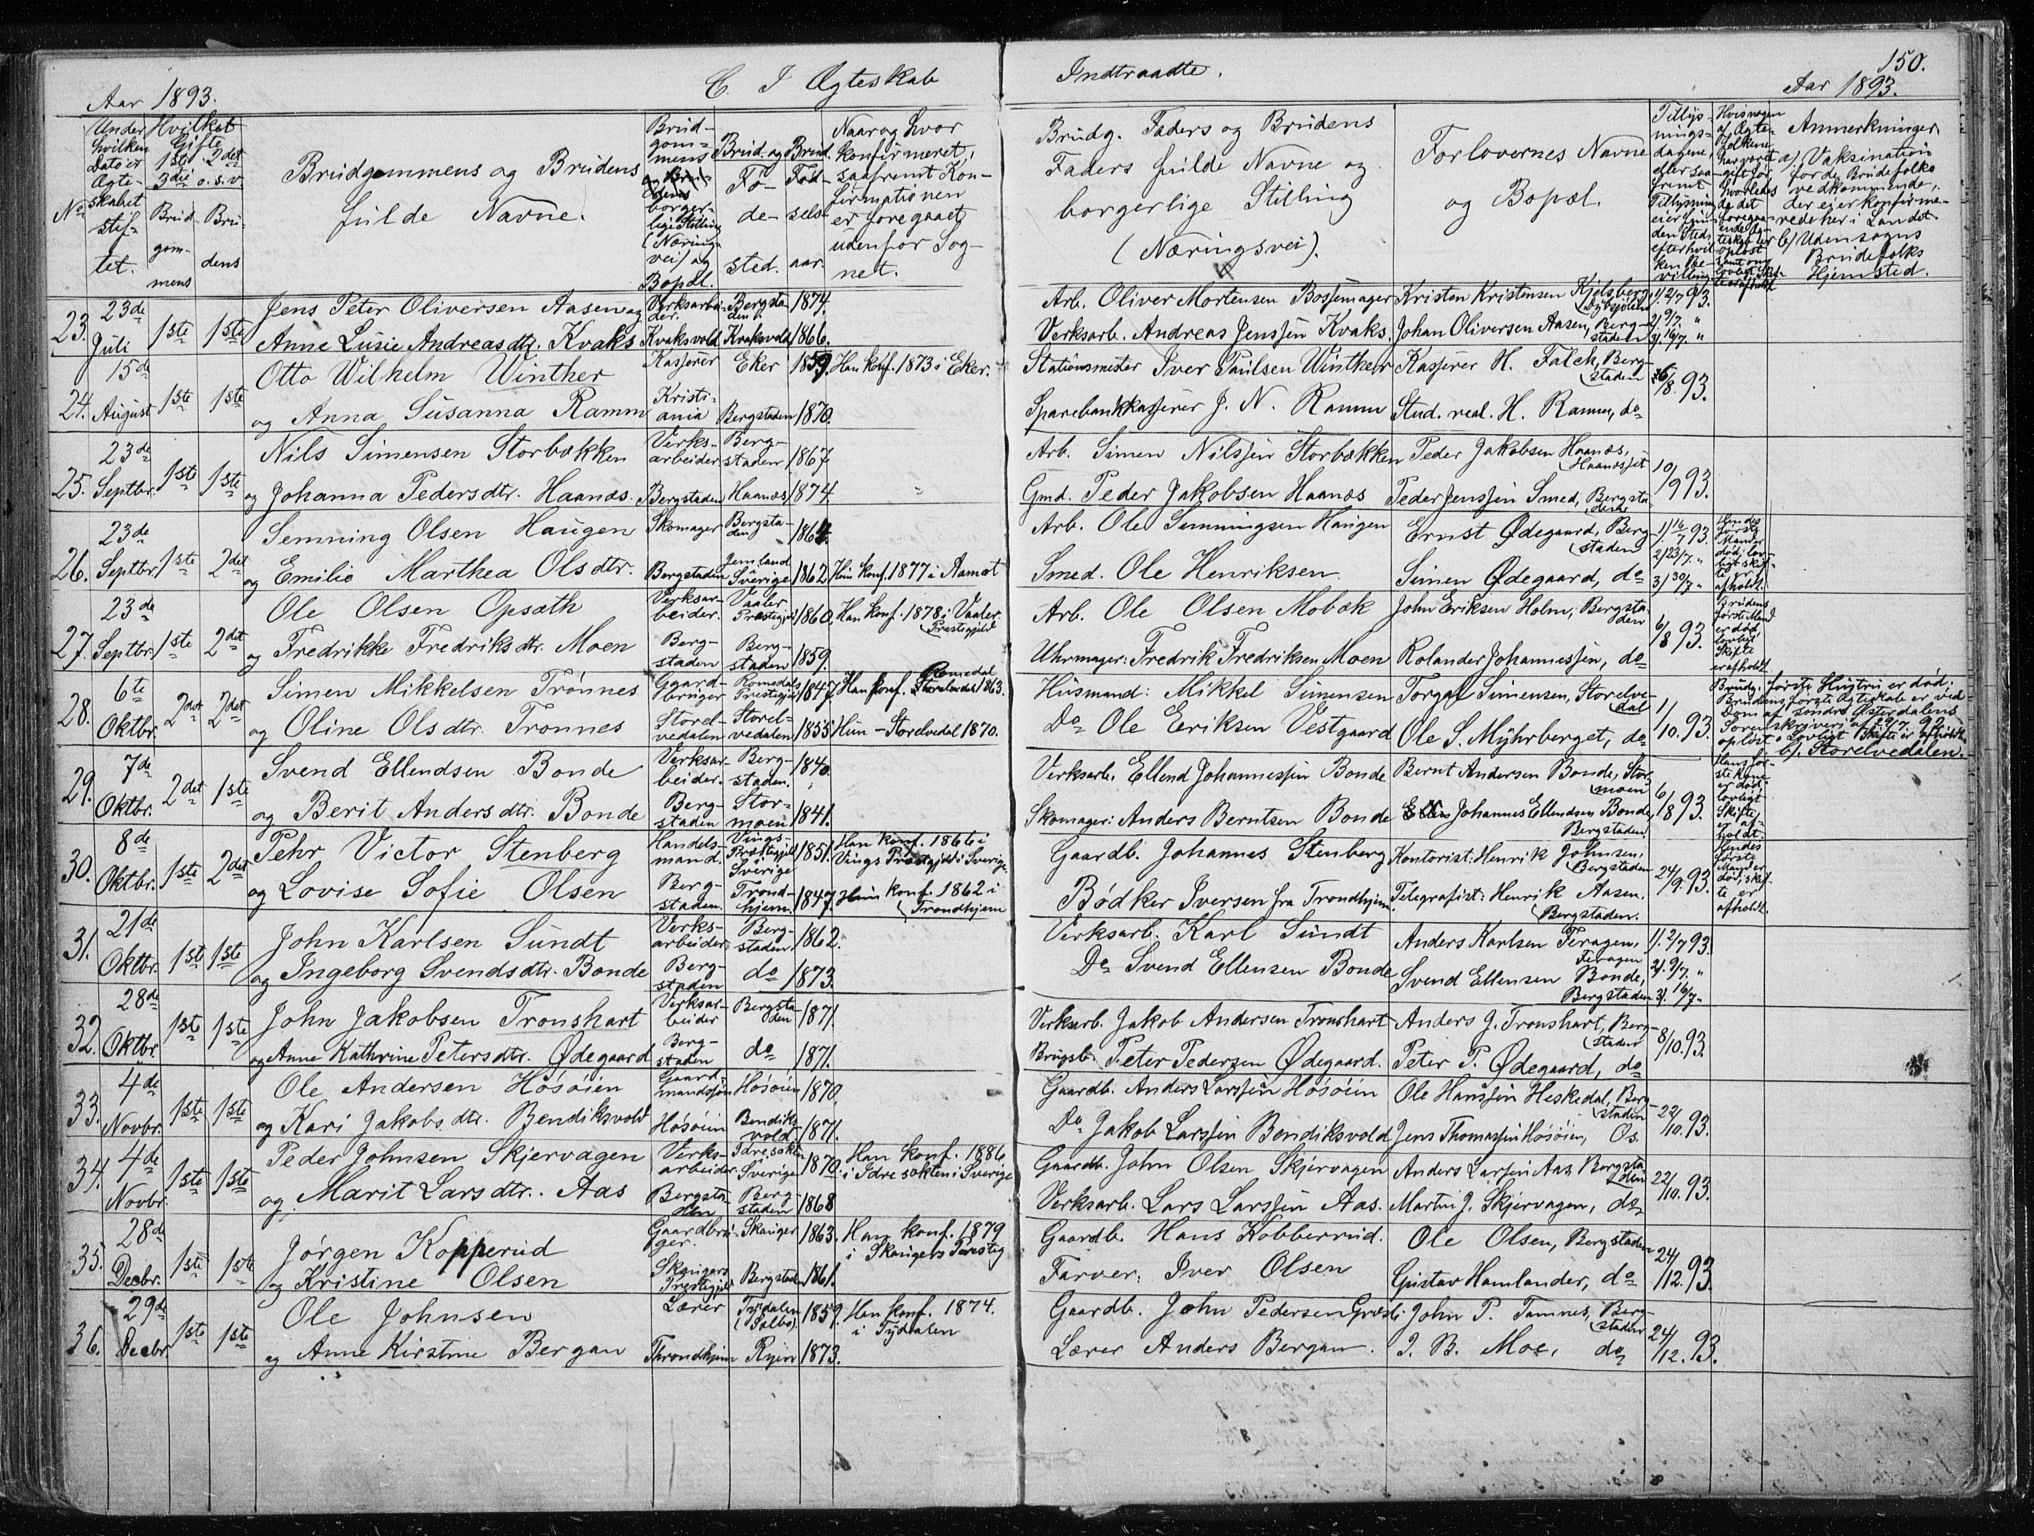 150.
Aar 1893.
C. I Ægteskab
Indtraadte.
Aar 1893.
No.
Under hvilken Dato er Ægteskabet stiftet.
Hvilket Gifte 1ste 2det 3die o.s.v.
Brudgommens
Brudens
Brudgommens og Brudens fulde Navne.
Brudgommens borgerlige Stilling (Næringsvei) og Bopæl.
Brud. og Brud.
Fødested.
Fødselsaar.
Naar og hvor konfirmeret, saafremt Konfirmationen er foregaaet udenfor Sognet.
Brudg. Faders og Brudens Faders fulde Navne og borgerlige Stilling (Næringsvei).
Forlovernes Navne og Bopæl.
Anmerkninger
a) Vaksination for de Brudefolks vedkommende, der ei er konfirmerede her i Landet
b) Udensogns Brudefolks Hjemsted.
23. 23de Juli 1ste 1ste
Jens Peter Oliversen Aasen og Verksarbeider. Bergstaden 1874.
Anne Lusie Andreasdtr. Kvaks Kvaksvold Kvaksvold 1866.
Arb. Oliver Mortensen Bossemager Kristen Kristensen Kjelsberg 1/ 2/7 93.
Verksarb. Andreas Jenssen Kvaks. Johan Oliversen Aasen, Bergstaden 2/ 9/7. " 3/ 16/7 "
24. 15de August 1ste 1ste
Otto Wilhelm Winther Kasserer Eker 1859. Han konf. 1873 i Eker.
og Anna Susanna Ramm Kristiania Bergstaden 1870.
Stationsmester Iver Paulsen Winther Kasserer H. Falch, Bergstaden /8 93.
Sparebankkasserer J. N. Ramm Stud. real. H. Ramm, do
25. 23de Septbr. 1ste 1ste
Nils Simensen Storbækken Verksarbeider Bergstaden 1867
og Johanna Pedersdtr. Haanæs. Bergstaden Haanæs 1874
Arb. Simen Nilssen Storbækken Peder Jakobsen Haanæs, 10/9 93.
Gmd. Peder Jakobsen Haanæs Peder Jenssen Smed, Bergstaden
26. 23de Septbr. 1ste 2det
Semning Olsen Haugen Skomager Bergstaden 1864.
og Emilie Marthea Olsdtr. Bergstaden Jemtland i Sverige 1862 Hun konf. 1877 i Aamot
Arb. Ole Semmingsen Haugen Ernst Ødegaard, Bergstaden 1/ 16/7 93.
Smed. Ole Henriksen Simen Ødegaard, do 2/ 23/7. " 3/ 30/7 "
Hendes første Mand er død, lovligt skifte er afholdt.
27. 23de Septbr. 1ste 2det
Ole Olsen Opsæth Verksarbeider. Vaaler Præstegjel 1860. Han konf. 1878 i Vaaler Præstegjeld
og Fredrikke Fredriksdtr. Moen Bergstaden Bergstaden 1859.
Arb. Ole Olsen Mobæk John Eriksen Holm, Bergstaden 6/8 93.
Uhrmager: Fredrik Fredriksen Moen Rolander Johannessen, do
Brudens første Mand er død, lovligt Skifte er afholdt
28. 6te Oktbr. 2det 2det
Simen Mikkelsen Trønnes Gaardbruger Romedals Prestegjel 1847. Han konf. Romedal 1863.
og Oline Olsdtr. Trønnes Storelvedalen Storelvedalen 1855 Hun - Storelvedal 1870.
Husmand: Mikkel Simensen Torger Simensen, Storelvedal 1/10. 93.
Do Ole Eeriksen Vestgaard Ole S. Myhrberget, do
Brudg. første Hustru er død. Brudens første Ægteskab er ved Dom af søndre Østerdalens Sorenskriveri af 29/7 92 opløst. Lovligt Skifte er afholdt. b) Storelvedalen.
29. 7de Oktbr. 2det 1ste
Svend Ellendsen Bonde Verksarbeider. Bergstaden. 1840.
og Berit Andersdtr. Bonde Bergstaden Stormoen 1841.
Verksarb. Ellend Johannessen Bonde Bernt Andersen Bonde, Stormoen 6/8 93.
Skomager: Anders Berntsen Bonde Johannes Ellendsen Bonde, Bergstaden
Hans første Kone er død, lovligt Skifte er afholdt.
30. 8de Oktbr. 1ste 2det
Pehr Victor Stenberg Handelsmand. Vings Prestegjeld i Sverige 1851. Han konf. 1866 i Vings Prestegjeld i Sverige
og Lovise Sofie Olsen Bergstaden. Trondhjem. 1847. Hun konf. 1862 i Trondhjem
Gaardb. Johannes Stenberg Kontorist: Henrik Johnsen, Bergstaden 24/9. 93.
Bødker Iversen fra Trondhjem. Telegrafist: Henrik Aasen, Bergstaden.
Hendes første Mand er død, skifte er afholdt.
31. 21de Oktbr. 1ste 1ste
John Karlsen Sundt Verksarbeider Bergstaden. 1862.
og Ingeborg Svendsdtr. Bonde Bergstaden do 1873.
Verksarb. Karl Sundt Anders Karlsen Feragen, Feragen 1/ 2/7 93.
Do Svend Ellensen Bonde Svend Ellensen Bonde, Bergstaden 2/ 9/7. " 3/ 16/7 "
32. 28de Oktbr. 1ste 1ste
John Jakobsen Tronshart Verksarbeider Bergstaden 1871.
og Anne Kathrine Petersdtr. Ødegaard Bergstaden do 1871.
Verksarb. Jakob Andersen Tronshart Anders J. Tronshart, Bergstaden 8/10. 93.
Brugsb. Peter Pedersen Ødegaard. Peter P. Ødegaard, do
33. 4de Novbr. 1ste 1ste
Ole Andersen Høsøien Gaardmandssøn Høsøien 1870.
og Kari Jakobsdtr. Bendiksvold Høsøien Bendiksvold 1871.
Gaardb. Anders Larssen Høsøien Ole Hanssen Heskedal, Bergstaden 22/10. 93.
Do Jakob Larssen Bendiksvold Jens Thomassen Høsøien, Os.
34. 4de Novbr. 1ste 1ste
Peder Johnsen Skjervagen Verksarbeider Idre soken i Sverige 1870. Han konf. 1886 i Idre sokten i Sverige
og Marit Larsdtr. Aas Bergstaden Bergstaden 1868
Gaardb. John Olsen Skjervagen Anders Larsen Aas Bergstaden 22/10. 93.
Verksarb. Lars Larssen Aas. Martin J. Skjervagen, do
35. 28de Decbr. 1ste 1ste
Jørgen Kopperud Gaardbruger. Skauger 1863. Han konf. 1879 i Skaugers Prestig
og Kristine Olsen Skaugers Prestegjel Bergstaden 1861.
Gaardb. Hans Kobberrud. Ole Olsen, Bergstaden 24/12. 93.
Farver: Iver Olsen Gustav Hamlander, do
36. 29de Decbr 1ste 1ste
Ole Johnsen Lærer Tydalen (Selbo) 1859. Han konf. 1874. i Tydalen
og Anne Kirstine Bergan Throndhjem Ryen 1873.
Gaardb. John Pedersen Græsli John P. Tamnes, Bergstaden 24/12. 93.
Lærer Anders Bergan. I. B. Moe, do